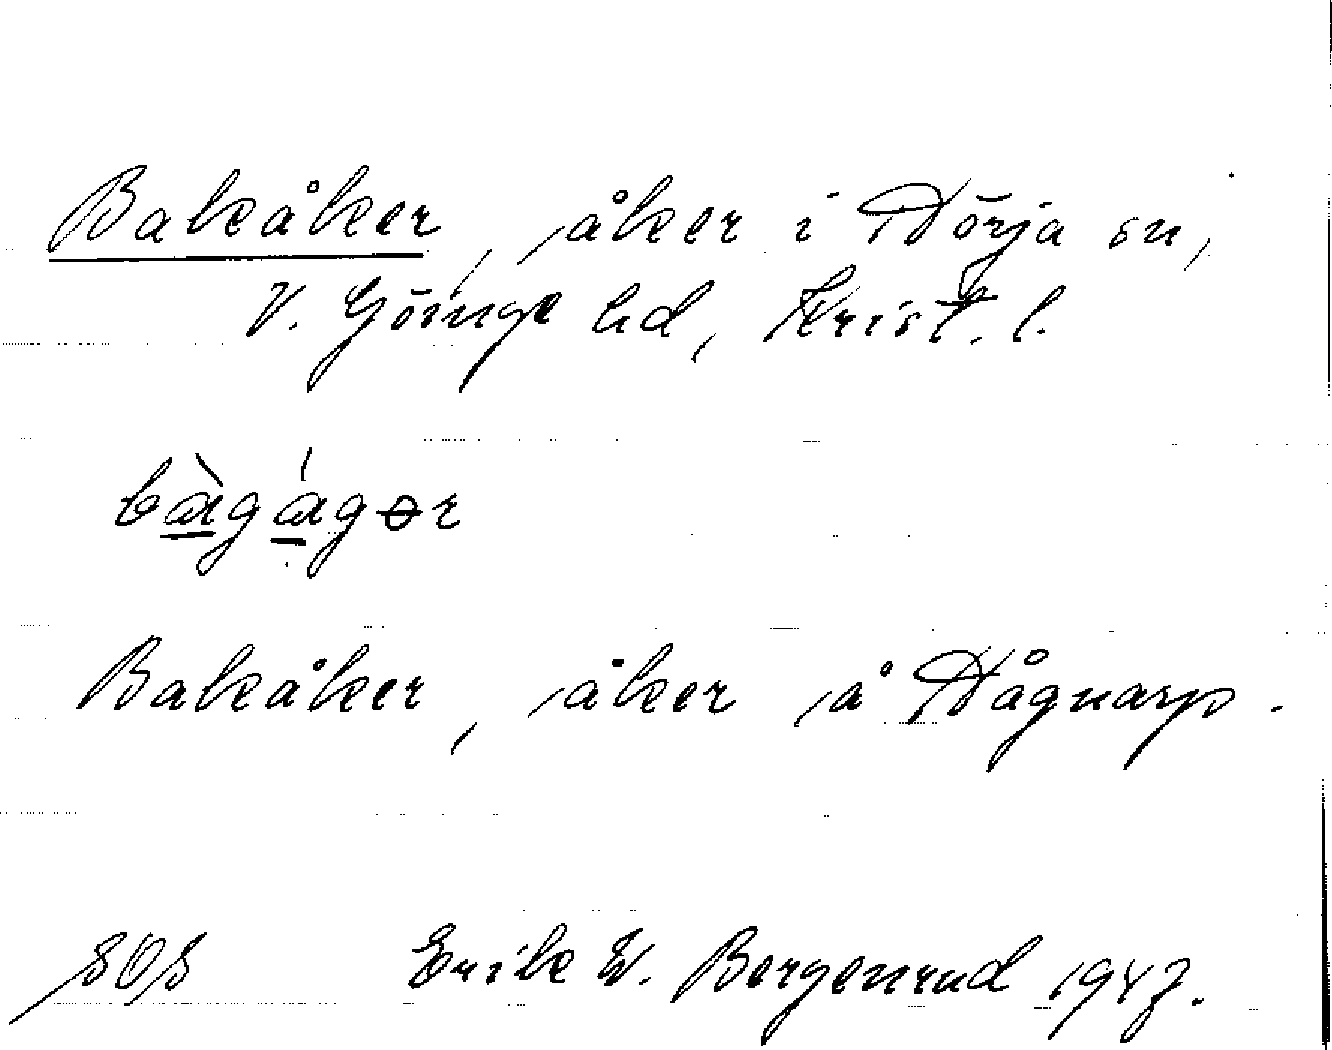 Bakåker, åker i Nörja sn,
V. Göinge hd, Krist. l.
bàgágər
Bakåker, åker å Dågnarp.
SOS Erik W. Bergenrud 1947.